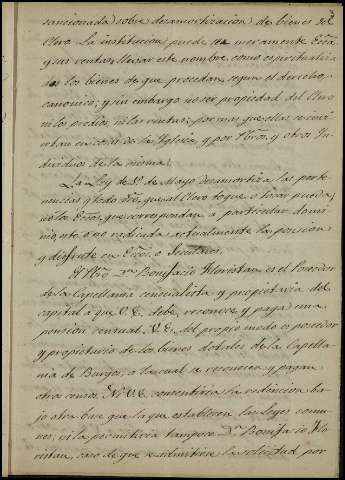 sancionada, sobre desamortizacion de bienes del
Clero. La institucion puede ser meramente Ecca
y sus rentas llevar este nombre, como espiritualiza
dos los bienes de que procedan, segun el derecho
canonico; y sin embargo no ser propiedad del Clero
ni los predios, ni las rentas; por mas que ellas se convi
ertan en de la Iglesia, y por Pbros, y otros In
dividuos de la misma.
La Ley de 1º de Mayo desamortiza las perte
nencias y todo que al Clero toque o tocar pueda;
no las que correspondan a particular domi
nio, este o no radicada actualmente la posesion
y disfrute en Eccos. o Seculares.
El Pbro Dn Bonifacio Floristan es el Poseedor
de la Capellania censualista, y propietario del
capital a que V.E. debe, reconoce y paga una
pension censual. V.E. del propio modo es poseedor
y propietario de los bienes dotales de la Capella
nia de Burgos, a la cual se reconocen y pagan
otros censos. Ni V.E. consentiria la redencion ba
jo otra base que la que establecen las Leyes comu
nes, ni la permitiria tampoco Dn Bonifacio Flo
ristan, caso de que se admitiese la solicitud por